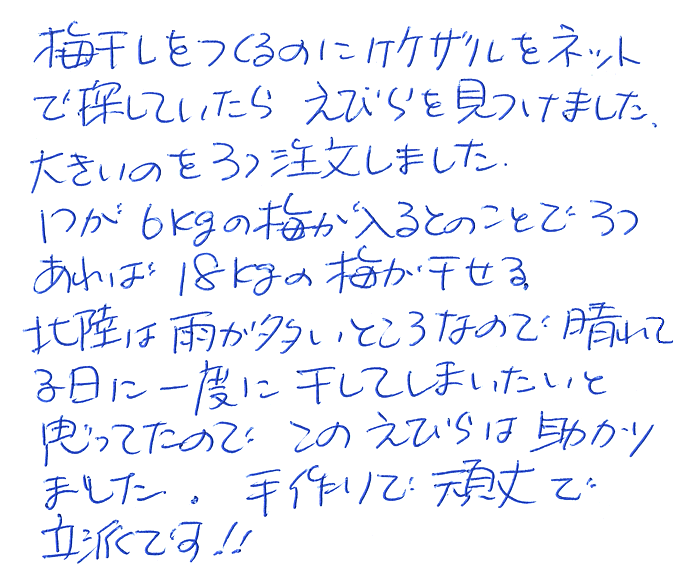 梅干しをつくるのに竹ザルをネット
で探していたら えびらを見つけました、
大きいのを3つ注文しました.
1つが 6kgの梅が入るとのことで 3つ
あれば 18kgの梅が干せる。
北陸は雨が多いところなので 晴れて
る日に一度に干してしまいたいと
思ってたので このえびらは助かり
ました. 手作りで 頑丈で
立派です!!